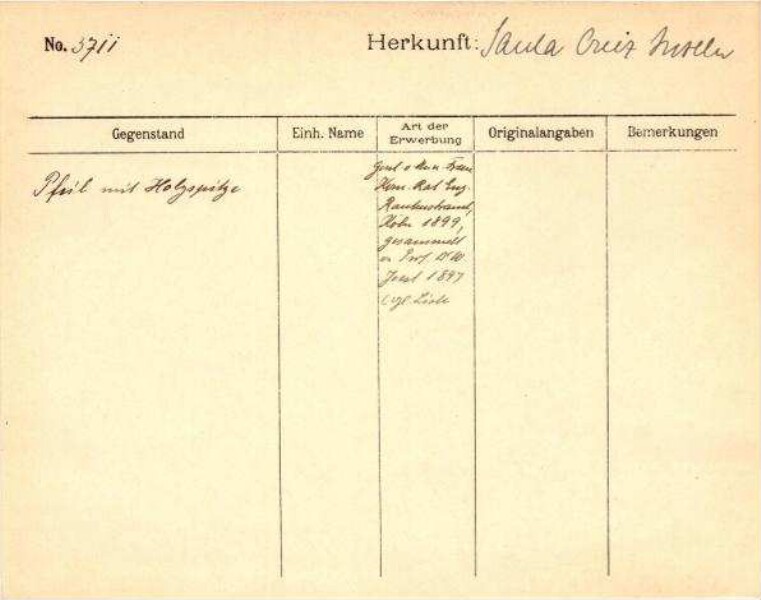 No. 3711
Herkunft: Santa Cruz Inseln
Gegenstand
Einh. Name
Art der Erwerbung
Originalangaben
Bemerkungen
Pfeil mit Holzspitze
Frau
Rat Eug.
Rautenstrauch,
1899,
gesammelt
Prof
Joest 1897
Liste